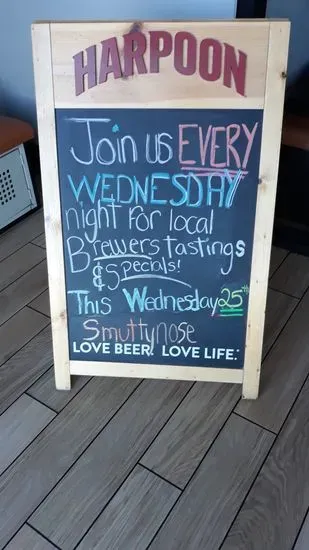 HARPOON
Join us EVERY
WEDNESDAY
night For local
Brewers tastings
& Specials!
This Wednesday 25th
Smuttynose
LOVE BEER. LOVE LIFE.